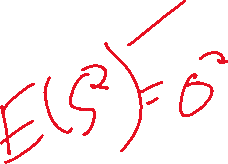 E(S²)=σ²